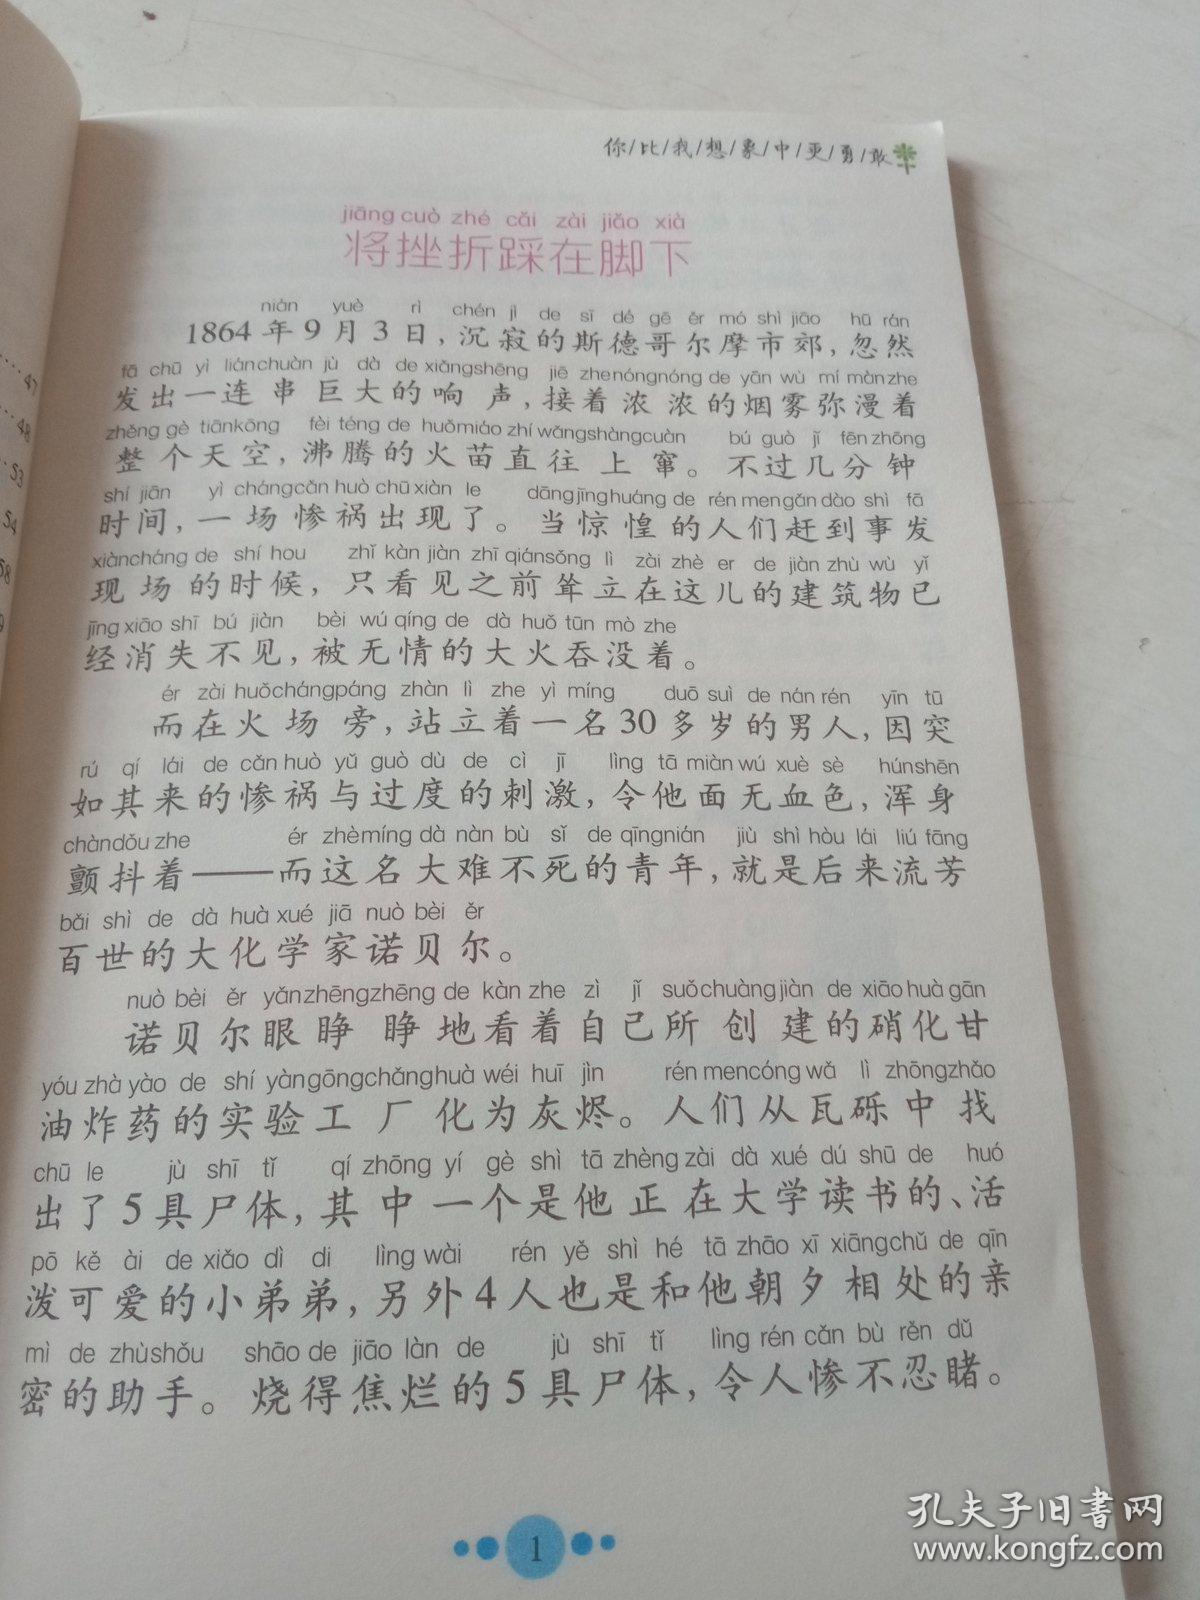 你/比/我/想/象/中/更/勇/敢
jiāng cuò zhé cǎi zài jiǎo xià
将挫折踩在脚下
nián yuè rì chén jì de sī dé gē ěr mó shì jiāo hū rán
1864年9月3日,沉寂的斯德哥尔摩市郊,忽然
fā chū yì liánchuàn jù dà de xiǎngshēng jiē zhenóngnóng de yān wù mí mànzhe
发出一连串巨大的响声,接着浓浓的烟雾弥漫着
zhěng gè tiānkōng fèi téng de huǒmiáo zhí wǎngshàngcuàn bú guò jǐ fēnzhōng
整个天空,沸腾的火苗直往上窜。不过几分钟
shí jiān yì chángcǎn huò chū xiàn le dāngjīnghuáng de rén mengǎn dào shì fā
时间,一场惨祸出现了。当惊惶的人们赶到事发
xiànchǎng de shí hou zhǐ kàn jiàn zhī qiánsǒng lì zài zhè er de jiàn zhù wù yǐ
现场的时候,只看见之前耸立在这儿的建筑物已
jīng xiāo shī bú jiàn bèi wú qíng de dà huǒ tūn mò zhe
经消失不见,被无情的大火吞没着。
ér zài huǒchángpáng zhàn lì zhe yì míng duō suì de nán rén yīn tū
而在火场旁,站立着一名30多岁的男人,因突
rú qí lái de cǎn huò yǔ guò dù de cì jī lìng tā miàn wú xuè sè húnshēn
如其来的惨祸与过度的刺激,令他面无血色,浑身
chàndǒu zhe ér zhèmíng dà nàn bù sǐ de qīngnián jiù shì hòu lái liú fāng
颤抖着——而这名大难不死的青年,就是后来流芳
bǎi shì de dà huà xué jiā nuò bèi ěr
百世的大化学家诺贝尔。
nuò bèi ěr yǎnzhēngzhēng de kàn zhe zì jǐ suǒchuàngjiàn de xiāo huà gān
诺贝尔眼睁睁地看着自己所创建的硝化甘
yóu zhà yào de shí yàngōngchǎnghuà wéi huī jìn rén mencóng wǎ lì zhōngzhǎo
油炸药的实验工厂化为灰烬。人们从瓦砾中找
chū le jù shī tǐ qí zhōng yí gè shì tā zhèng zài dà xué dú shū de huó
出了5具尸体,其中一个是他正在大学读书的、活
pō kě ài de xiǎo dì di lìng wài rén yě shì hé tā zhāo xī xiāngchǔ de qīn
泼可爱的小弟弟,另外4人也是和他朝夕相处的亲
mì de zhùshǒu shāo de jiāo làn de jù shī tǐ lìng rén cǎn bù rěn dǔ
密的助手。烧得焦烂的5具尸体,令人惨不忍睹。
1
47
48
53
54
58
9
孔夫子旧书网
www.kongfz.com